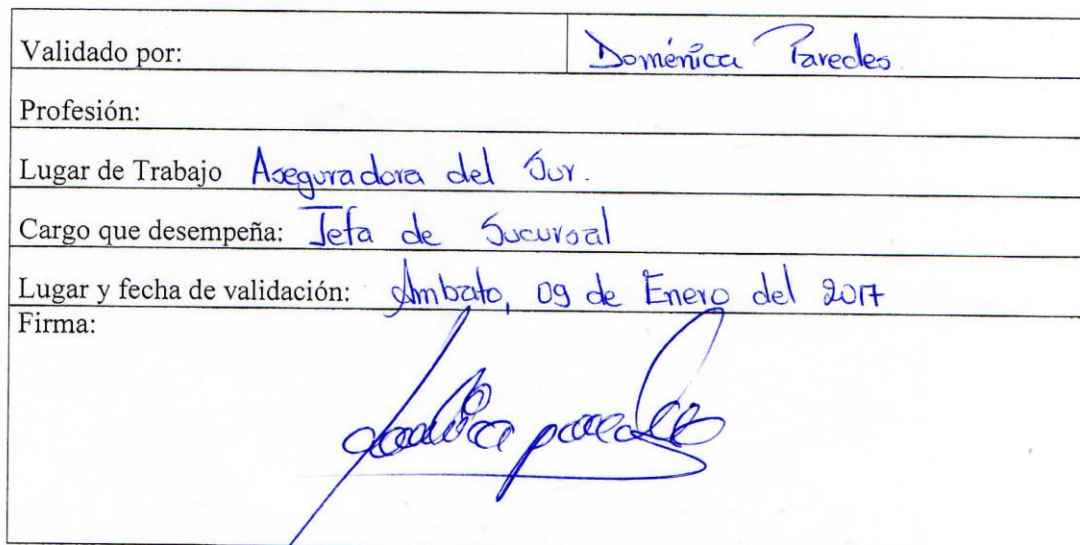 Validado por: Doménica Paredes
Profesión:
Lugar de Trabajo Aseguradora del Sur.
Cargo que desempeña: Jefa de Sucursal
Lugar y fecha de validación: Ambato, 09 de Enero del 2017
Firma: